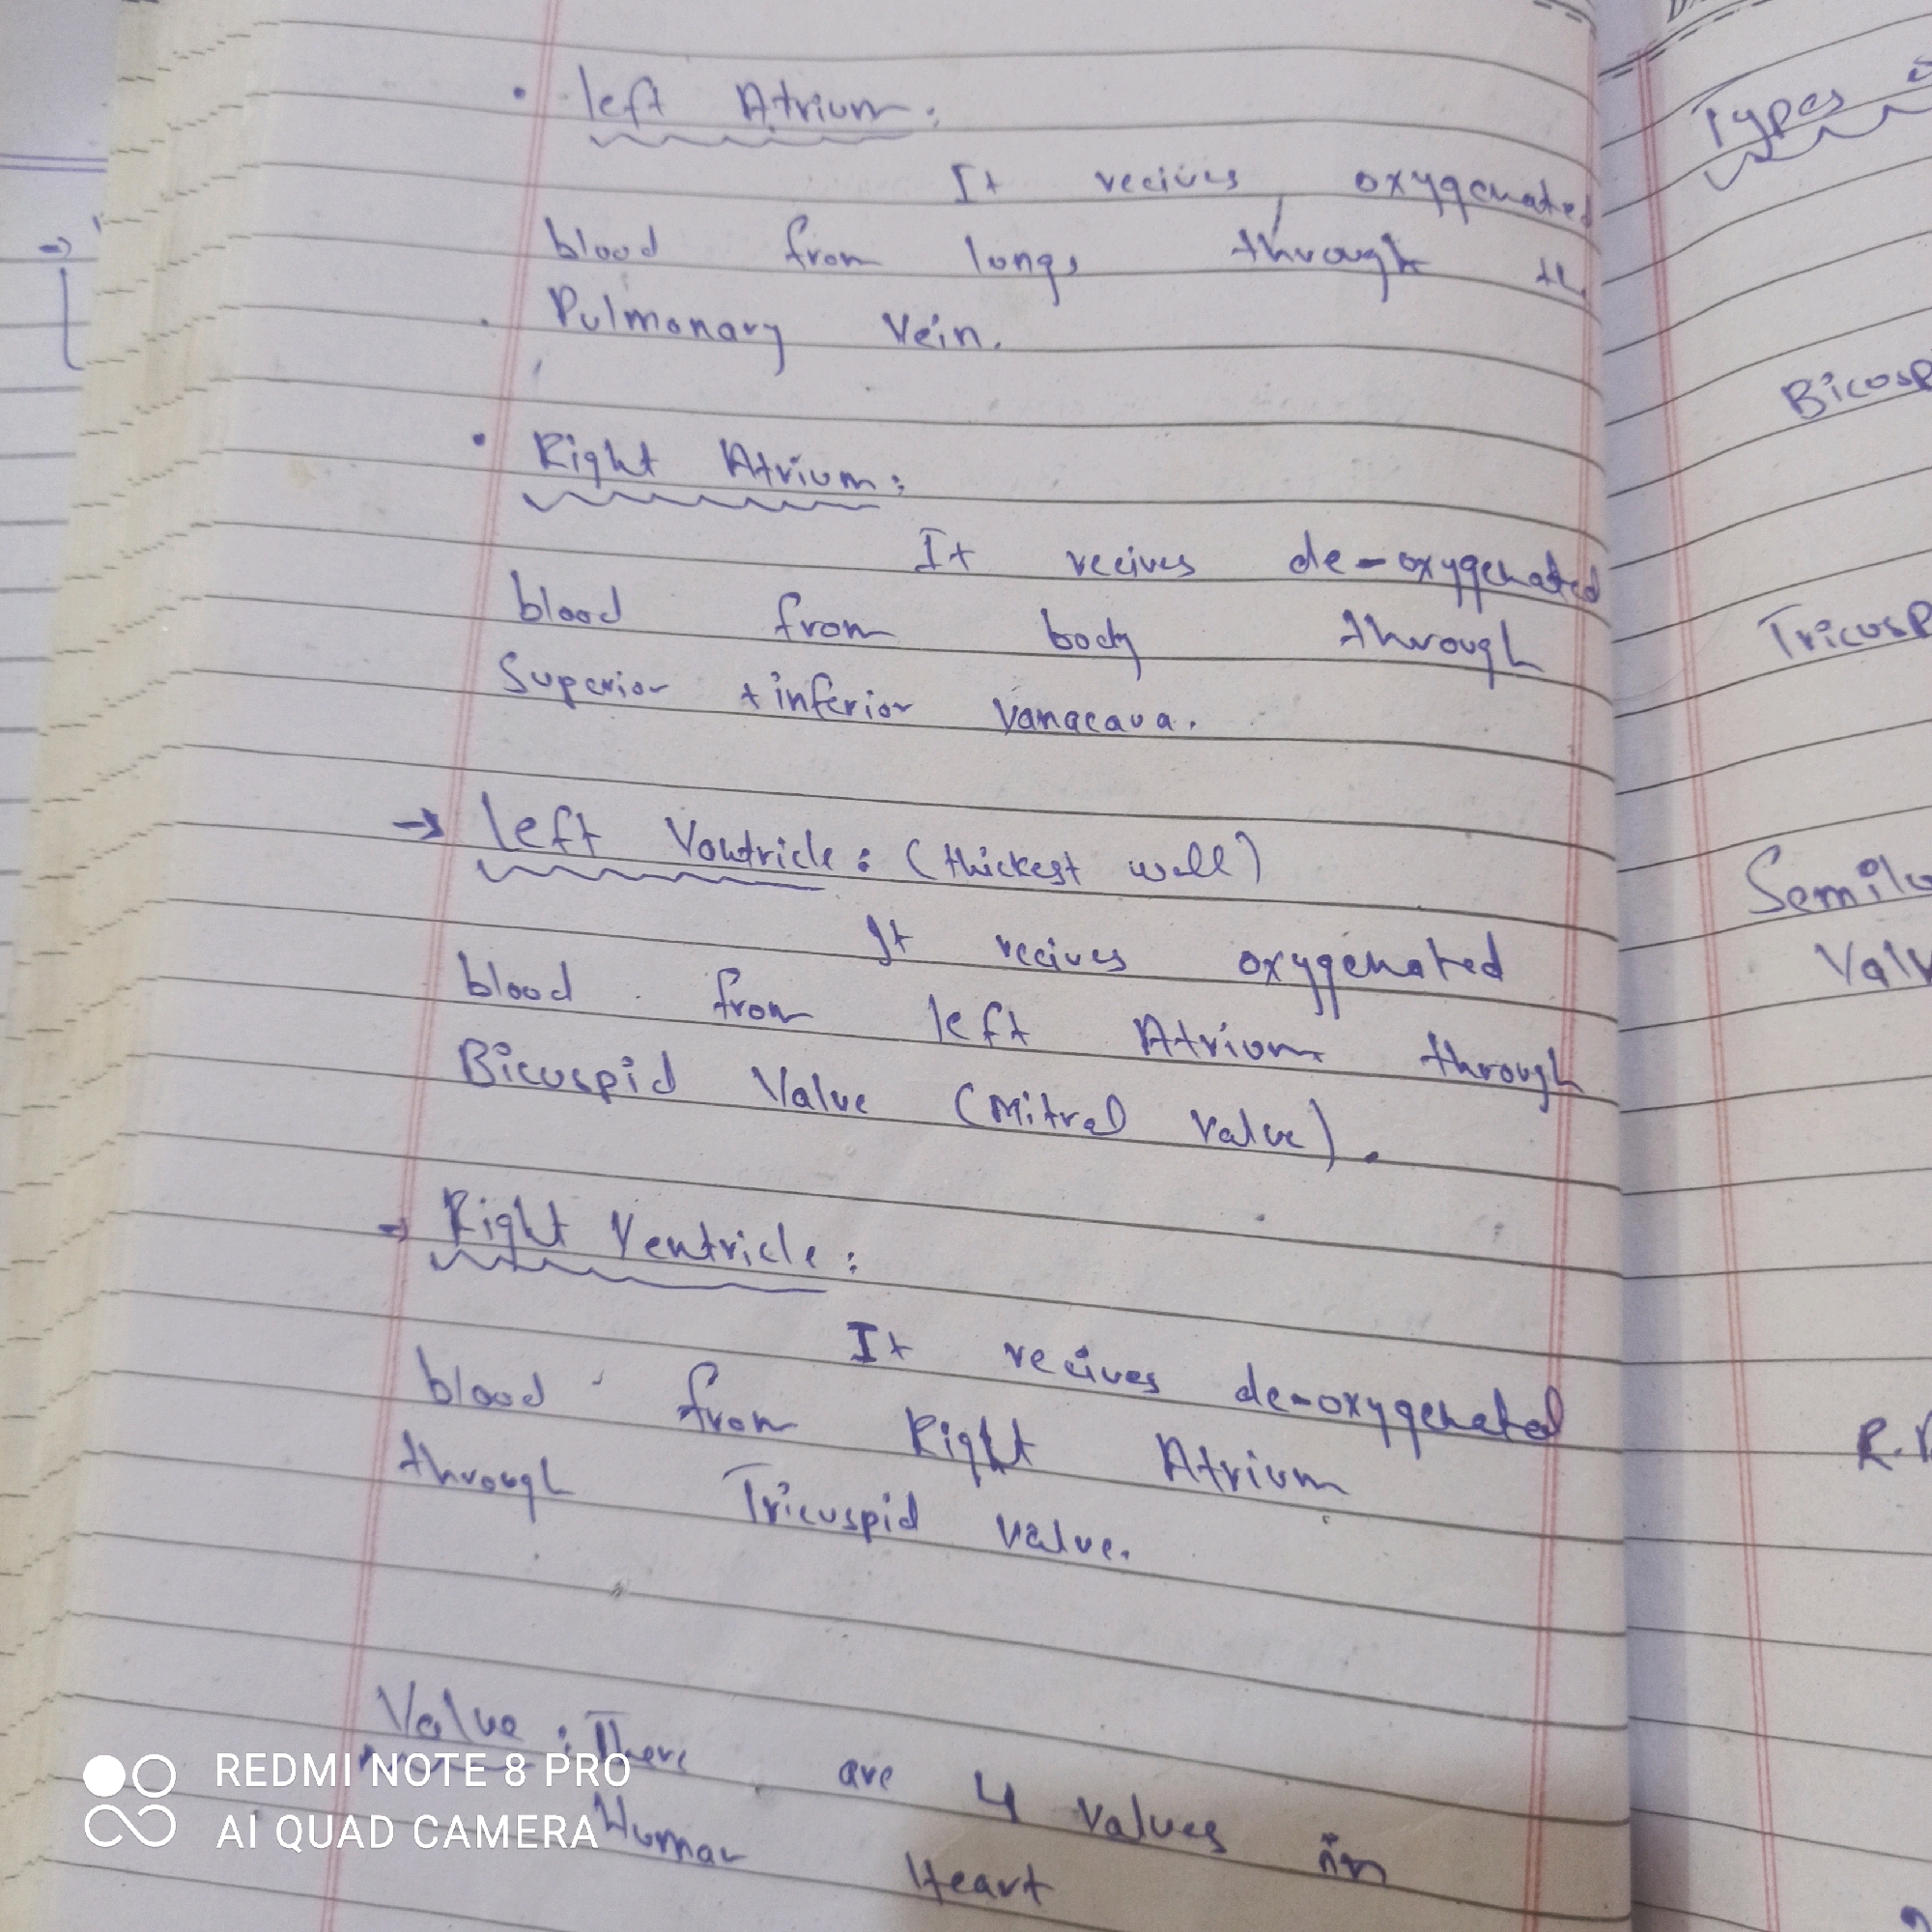 • left Atrium:
It recives oxygenated
blood from lungs through th
Pulmonary Vein.
• Right Atrium:
It recives de-oxygenated
blood from body through
Superior + inferior Vanacava.
→ left Ventricle: (thickest wall)
It recives oxygenated
blood from left Atrium through
Bicuspid Valve (Mitral Valve).
→ Right Ventricle:
It recives de-oxygenated
blood from Right Atrium
through Tricuspid valve.
Valve: There are 4 valves in
Human Heart
Types
Bicusp
Tricusp
Semilu
Valv
R.
REDMI NOTE 8 PRO
AI QUAD CAMERA